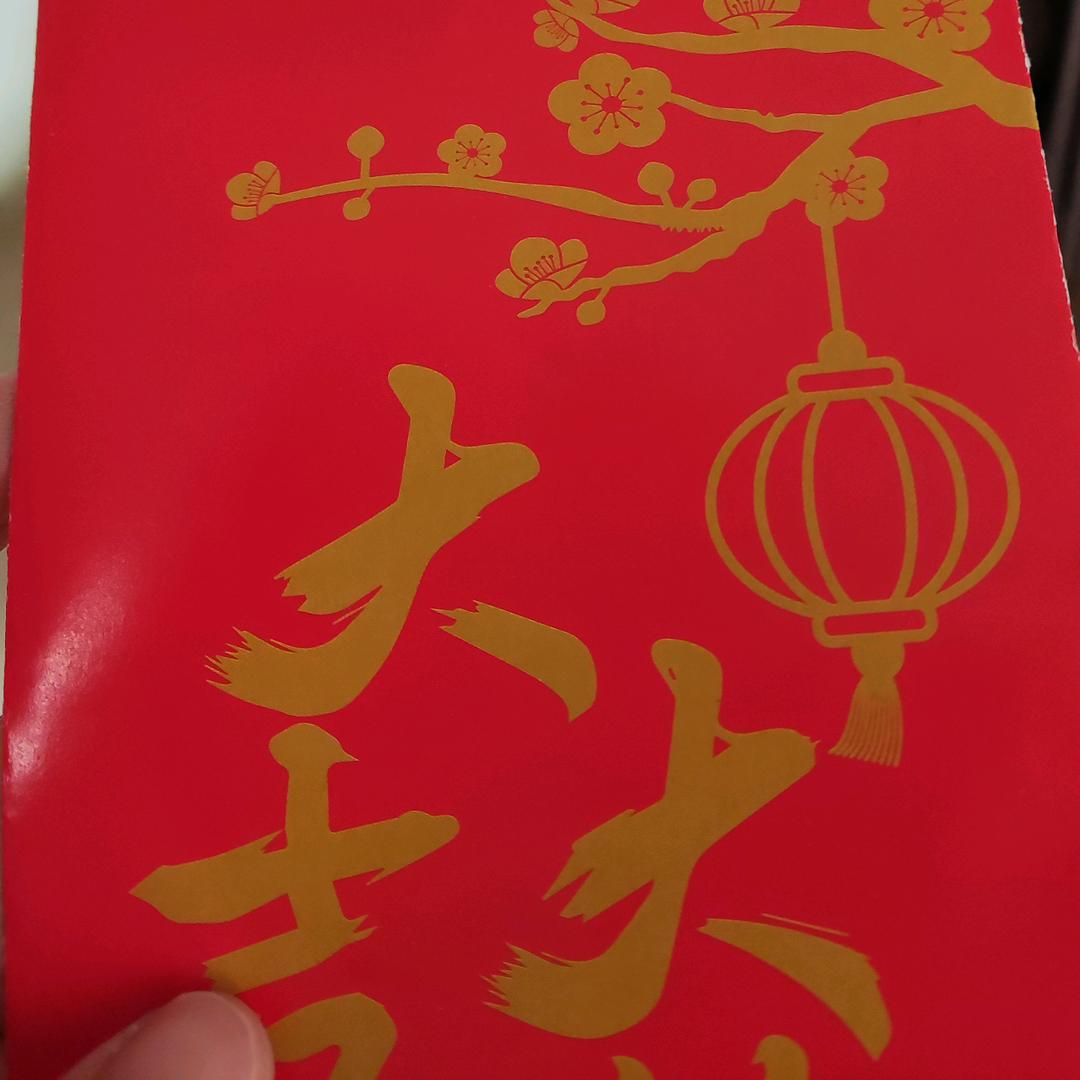 大吉
大